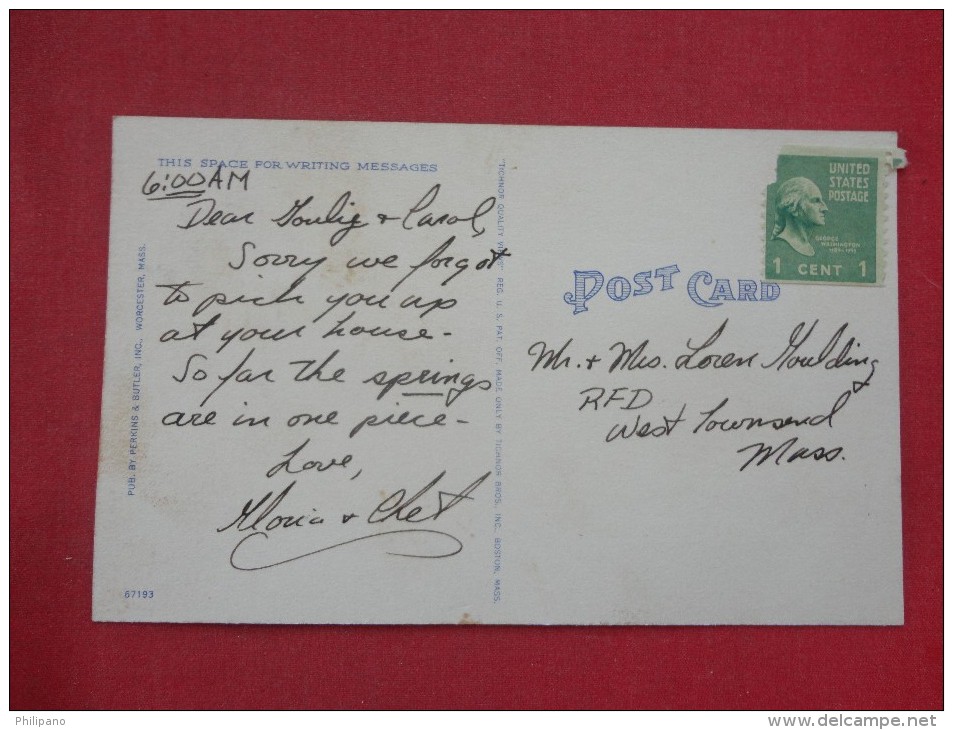 THIS SPACE FOR WRITING MESSAGES
6:00AM
Dear Gouldig & Carol,
Sorry we forgot
to pick you up
at your house-
So far the springs
are in one piece-
Love,
Gloria & Chet
67193
PUB. BY PERKINS & BUTLER, INC., WORCESTER, MASS.
"TICHNOR QUALITY VIEWS" REG. U. S. PAT. OFF. MADE ONLY BY TICHNOR BROS., INC. BOSTON, MASS.
UNITED
STATES
POSTAGE
GEORGE
WASHINGTON
1 CENT 1
POST CARD
Mr. + Mrs. Loren Goulding
RFD
West Townsend
Mass.
Philipano
www.delcampe.net